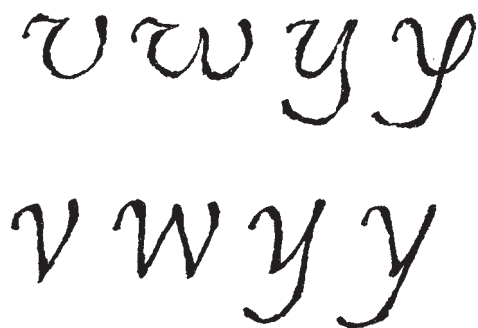 v w y y
v w y y